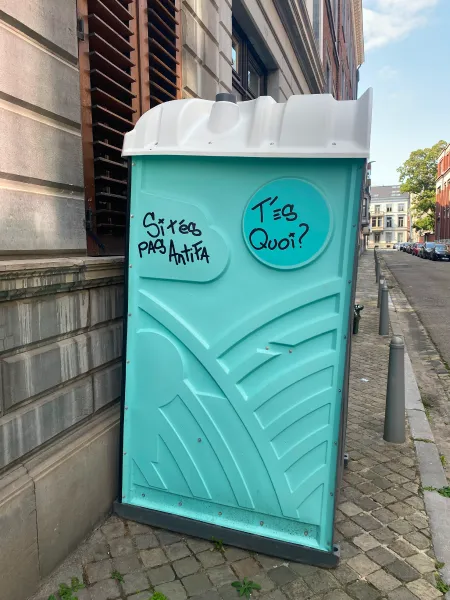 Si t'es
PAS ANTIFA
T'ES
Quoi?